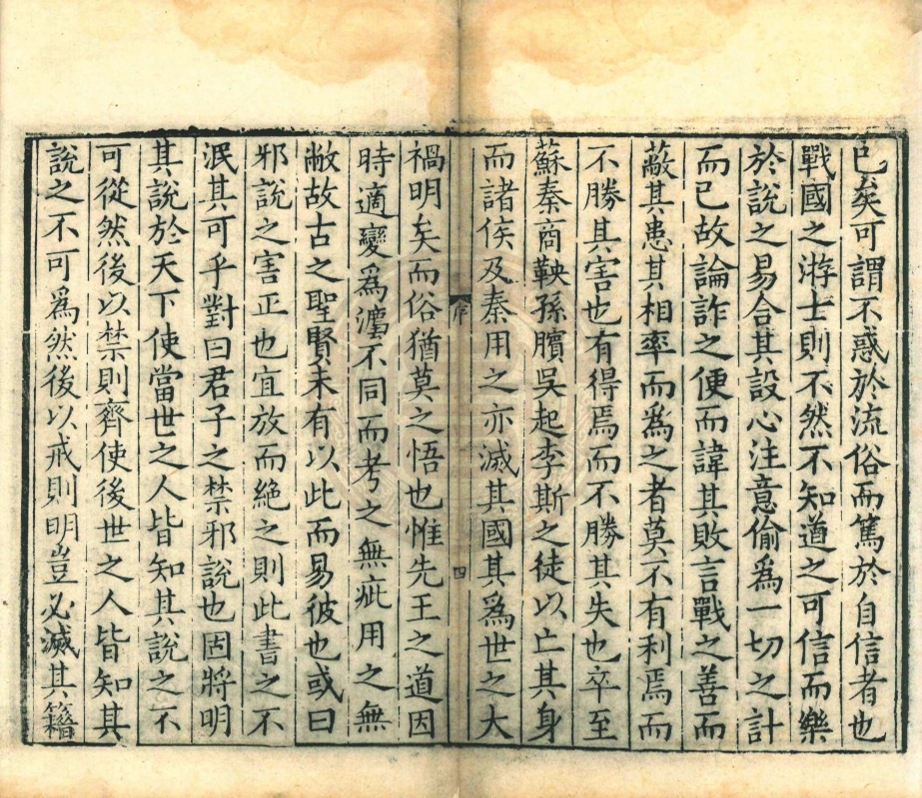 已矣可謂不惑於流俗而篤於自信者也
戰國之游士則不然不知道之可信而樂
於說之易合其設心注意偷爲一切之計
而已故論詐之便而諱其敗言戰之善而
蔽其患其相率而爲之者莫不有利焉而
不勝其害也有得焉而不勝其失也卒至
蘇秦商鞅孫臏吳起李斯之徒以亡其身
而諸侯及秦用之亦滅其國其爲世之大
序
四
禍明矣而俗猶莫之悟也惟先王之道因
時適變爲灋不同而考之無疵用之無
敝故古之聖賢未有以此而易彼也或曰
邪說之害正也宜放而絶之則此書之不
泯其可乎對曰君子之禁邪說也固將明
其說於天下使當世之人皆知其說之不
可從然後以禁則齊使後世之人皆知其
說之不可爲然後以戒則明豈必滅其籍